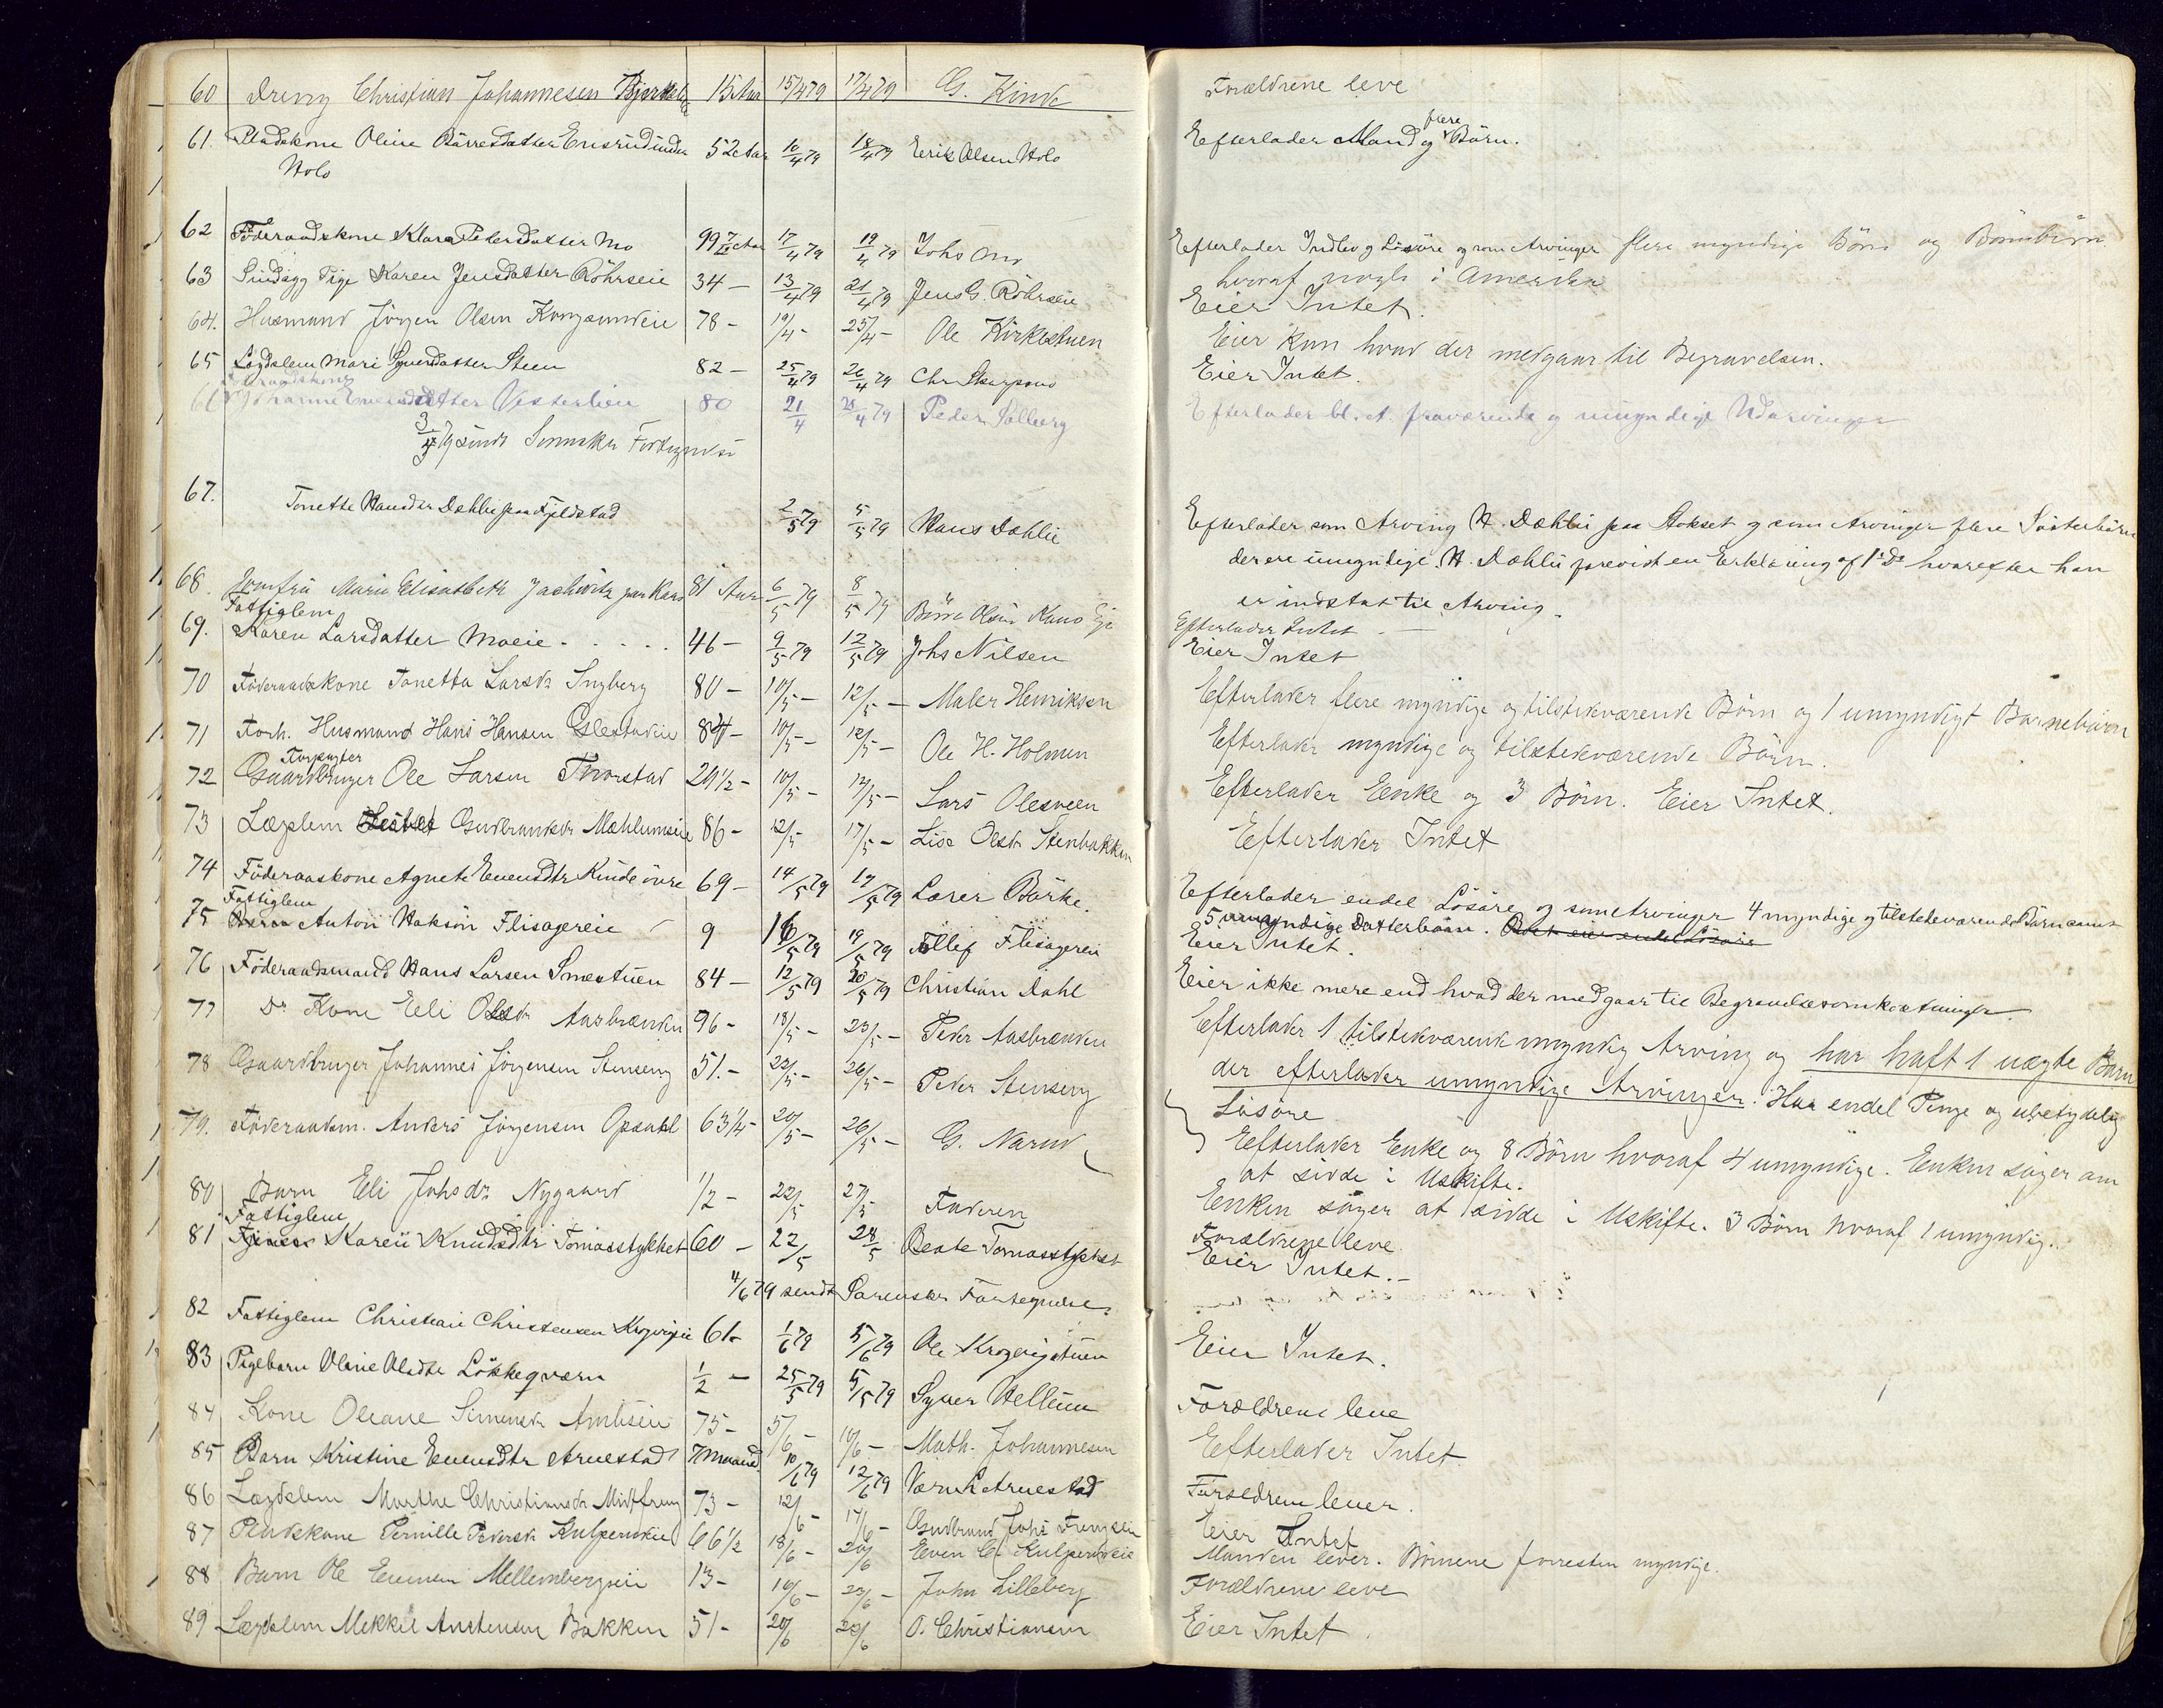 60 Dreng Christian Johannesen 15 Aar 15/4 79 17/4 79 G. Kinde Forældrene leve
61. Pladskone Oline Börresdatter Ensrud under 52 Aar 16/4 79 18/4 79 Eerik Olsen Holo Eefterlader Mand og flere Börn.
Holo
62 Föderaadskone Klara Pedersdatter Mo 99 Aar 17/4 79 19/4 79 Johs Mo Efterlader Indbo og Lösöre og som Arvinger flere myndige Börn og Börnebörn
hvoraf nogle i Amerika
63 Sindssyg Pige Karen Jensdatter Röhrseie 34 — 13/4 79 21/4 79 Jens G. Röhrseie Eier Intet.
64. Husmand Jörgen Olsen 78 - 19/4 - 25/4 - Ole Kirkestuen Eier kun hvad der medgaar til Begravelsen.
65 Lægdslem Mari Syversdatter Steen 82 — 25/4 79 26/4 79 Chr Eier Intet.
Föderaadskone
66 Johanne Evensdatter Vesterlien 80 21/4 28/4 79 Peder Solberg Efterlader bl. A. fraværende og umyndige Udarvinger
3/5 79 sendt Fortegnelse
67. Tonette Hansdtr Dæhlie paa Fjeldstad 2/5 79 5/5 79 Hans Dæhlie Efterlader som Arving H. Dæhlie paa Stokset og som Arvinger flere Sösterbörn
der ere umyndige. H. Dæhlie forevist en Erklæring af 1. Ds hvorefter han
er indsat til Arving.
68. Jomfru Marie Elisabeth 81 Aar 6/5 79 8/5 79 Börre Olsen Efterlader Intet. —
Fattiglem
69. Karen Larsdatter Moeie 46 — 9/5 79 12/5 79 Johs Nilsen Eier Intet
70 Föderaadskone Tonetta Larsdr Ingberg 80 — 10/5 — 12/5 — Maler Henriksen Efterlader flere myndige og tilstedeværende Börn og 1 umyndigt Barnebarn
71 Forh. Husmand Hans Hansen 84 — 10/5 — 12/5 — Ole H. Holmen Efterlader myndige og tilstedeværende Börn.
Forpagter
72 Gaardbruger Ole Larsen Thorstad 29 1/2 - 10/5 - 12/5 — Lars Olesveen Efterlader Enke og 3 Börn. Eier Intet.
73 Lægdslem Gudbrandsdr Mæhlumseie 86 - 12/5 17/5 — Lise Olsdr Stenbakken Efterlader Intet
74 Föderaaskone Agnete Evensdtr Kinde övre 69 — 14/5 79 19/5 79 Lærer Börke. Efterlader endel Lösöre og som Arvinger 4 myndige og tilstedeværende Börn samt
5 umyndige Datterbörn. Boet eier endel Lösöre
Fattiglem
75 Barn Anton Haksön Flisagereie 9 16/5 79 19/5 79 Ellef Flisagereie Eier Intet.
76 Föderaadsmand Hans Larsen Smestuen 84 — 12/5 79 20/5 79 Christian Dahl Eier ikke mere end hvad der medgaar til Begravelsesomkostninger
77 Do Kone Eeli Olsdr Aasbrænden 96 - 18/5 — 23/5 — Peder Aasbrænden Efterlader 1 tilstedeværende myndig Arving og har haft 1 uægte Barn
der efterlader umyndige Arvinger. Har endel Penge og ubetydelig
Lösöre
78 Gaardbruger Johannes Jörgensen Stenseng 51. — 22/5 — 26/5 — Peder Stenseng Eefterlader Enke og 8 Börn hvoraf 4 umyndige. Enken söger om
at sidde i Uskifte.
79. Föderaadsm. Anders Jörgensen Opsahl 63 1/4 - 20/5 — 26/5 — G. Narud Eenken söger at sidde i Uskifte. 3 Börn hvoraf 1 umyndig.
80 Barn Eli Johsdr Nygaard 1/2 - 22/5 27/5 Faderen Forældrene leve.
Fattiglem
81 Karen Knudsdtr Tomasstykket 60 — 22/5 28/5 Beate Tomasstykket Eier Intet. —
4/6 79 sendt Sorenskr Fortegnelse.
82 Fattiglem Christian Christensen 61 - 1/6 79 5/6 79 Ole Eier Intet.
83 Pigebarn Oline Olsdtr Lökkeqværn 1/2 — 25/5 79 5/5 79 Syver Hellum Forældrene leve
84 Kone Oleane Simensdr 75 - 5/6 10/6 — Math. Johannesen Eefterlader Intet.
85 Barn Kristine Evensdtr Arnestad 7 Maaned 10/6 79 12/6 79 Arnestad Forældrene lever.
86 Lægdslem Marthe Christiansdr 73 - 12/6 - 17/6 — Gudbrand Johs Eier Intet
87 Pladskone Pernille Pedersdr 66 1/2 18/6 - 20/6 Even Manden lever. Börnene forresten myndige.
88 Barn Ole Evensen Mellembergseie 13 - 19/6 - 23/6 - John Lilleberg Forældrene leve
89 Lægdslem Mekkel Anstensen Bakken 51 - 20/6 23/6 O. Christiansen Eier Intet.